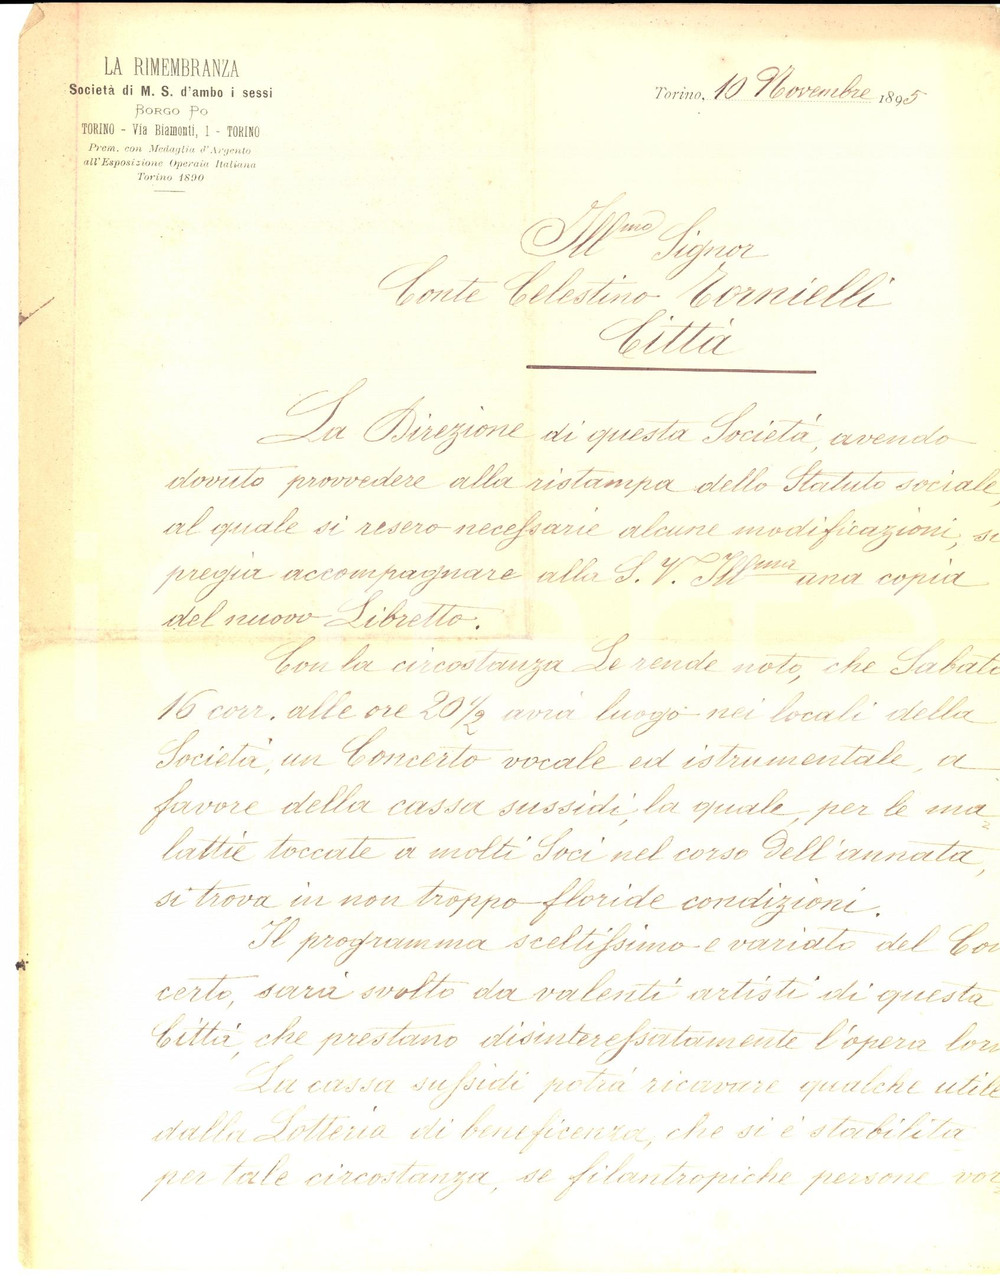 LA RIMEMBRANZA
Società di M. S. d'ambo i sessi
BORGO PO
TORINO - Via Biamonti, 1 - TORINO
Prem. con Medaglia d'Argento
all'Esposizione Operaia Italiana
Torino 1890
Torino, 10 Novembre 1895
Ill.mo Signor
Conte Celestino Tornielli
Città
La Direzione di questa Società, avendo
dovuto provvedere alla ristampa dello Statuto sociale,
al quale si resero necessarie alcune modificazioni, si
pregia accompagnare alla S. V. Ill.ma una copia
del nuovo Libretto.
Con la circostanza Le rende noto, che Sabato
16 corr. alle ore 20 1/2 avrà luogo nei locali della
Società, un Concerto vocale ed istrumentale, a
favore della cassa sussidi, la quale, per le ma=
lattie toccate a molti Soci nel corso dell'annata,
si trova in non troppo floride condizioni.
Il programma sceltissimo e variato del Con
certo, sarà svolto da valenti artisti di questa
Città, che prestano disinteressatamente l'opera loro
La cassa sussidi potrà ricavare qualche utile
dalla Lotteria di beneficenza, che si è stabilita
per tale circostanza, se filantropiche persone vor=